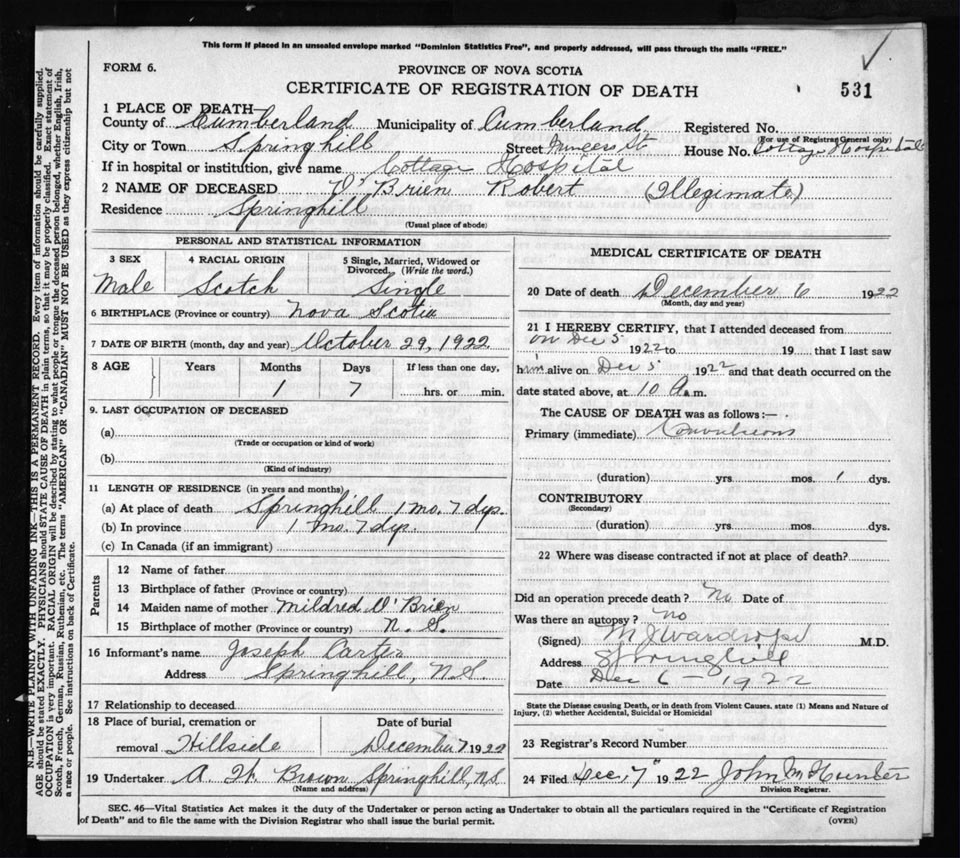 This form if placed in an unsealed envelope marked "Dominion Statistics Free", and properly addressed, will pass through the mails "FREE."
FORM 6.
PROVINCE OF NOVA SCOTIA
CERTIFICATE OF REGISTRATION OF DEATH
531
1 PLACE OF DEATH—
County of Cumberland Municipality of Cumberland Registered No.
(For use of Registrar General only)
City or Town Springhill Street St House No. Cottage Hospital
If in hospital or institution, give name Cottage Hospital
2 NAME OF DECEASED O'Brien Robert (Illegimate)
Residence Springhill
(Usual place of abode)
PERSONAL AND STATISTICAL INFORMATION
3 SEX 4 RACIAL ORIGIN 5 Single, Married, Widowed or Divorced, (Write the word.)
Male Scotch Single
6 BIRTHPLACE (Province or country) Nova Scotia
7 DATE OF BIRTH (month, day and year) October 29, 1922
8 AGE Years Months Days If less than one day,
1 7 hrs. or min.
9. LAST OCCUPATION OF DECEASED
(a)
(Trade or occupation or kind of work)
(b)
(Kind of industry)
11 LENGTH OF RESIDENCE (in years and months)
(a) At place of death Springhill 1 mo. 7 dys.
(b) In province 1 mo. 7 dys.
(c) In Canada (if an immigrant)
Parents
12 Name of father
13 Birthplace of father (Province or country)
14 Maiden name of mother Mildred O'Brien
15 Birthplace of mother (Province or country) N. S.
16 Informant's name Joseph Carter
Address Springhill, N.S.
17 Relationship to deceased
18 Place of burial, cremation or Date of burial
removal Hillside December 7, 1922
19 Undertaker A. W. Brown Springhill, N.S.
(Name and address)
MEDICAL CERTIFICATE OF DEATH
20 Date of death December 6 1922
(Month, day and year)
21 I HEREBY CERTIFY, that I attended deceased from
on Dec 5 1922 to 19 that I last saw
him alive on Dec 5 1922 and that death occurred on the
date stated above, at 10 A.m.
The CAUSE OF DEATH was as follows:—
Primary (immediate) Convulsions
(duration) yrs. mos. 1 dys.
CONTRIBUTORY
(Secondary)
(duration) yrs. mos. dys.
22 Where was disease contracted if not at place of death?
Did an operation precede death? No Date of
Was there an autopsy? No
(Signed) M J Wardrope M.D.
Address Springhill
Date Dec 6 - 1922
State the Disease causing Death, or in death from Violent Causes, state (1) Means and Nature of
Injury, (2) whether Accidental, Suicidal or Homicidal
23 Registrar's Record Number
24 Filed Dec 7" 1922 John M Hunter
Division Registrar.
SEC. 46—Vital Statistics Act makes it the duty of the Undertaker or person acting as Undertaker to obtain all the particulars required in the "Certificate of Registration
of Death" and to file the same with the Division Registrar who shall issue the burial permit.
(OVER)
N.B.—WRITE PLAINLY WITH UNFADING INK—THIS IS A PERMANENT RECORD. Every item of information should be carefully supplied.
AGE should be stated EXACTLY. PHYSICIANS should STATE CAUSE OF DEATH in plain terms, so that it may be properly classified. Exact statement of
OCCUPATION is very important. RACIAL ORIGIN will be described by stating to what people or tongue the deceased person belonged, whether English, Irish,
Scotch, French, German, Russian, Ruthenian, etc. The terms "AMERICAN" OR "CANADIAN" MUST NOT BE USED as they express citizenship but not
a race or people. See instructions on back of Certificate.